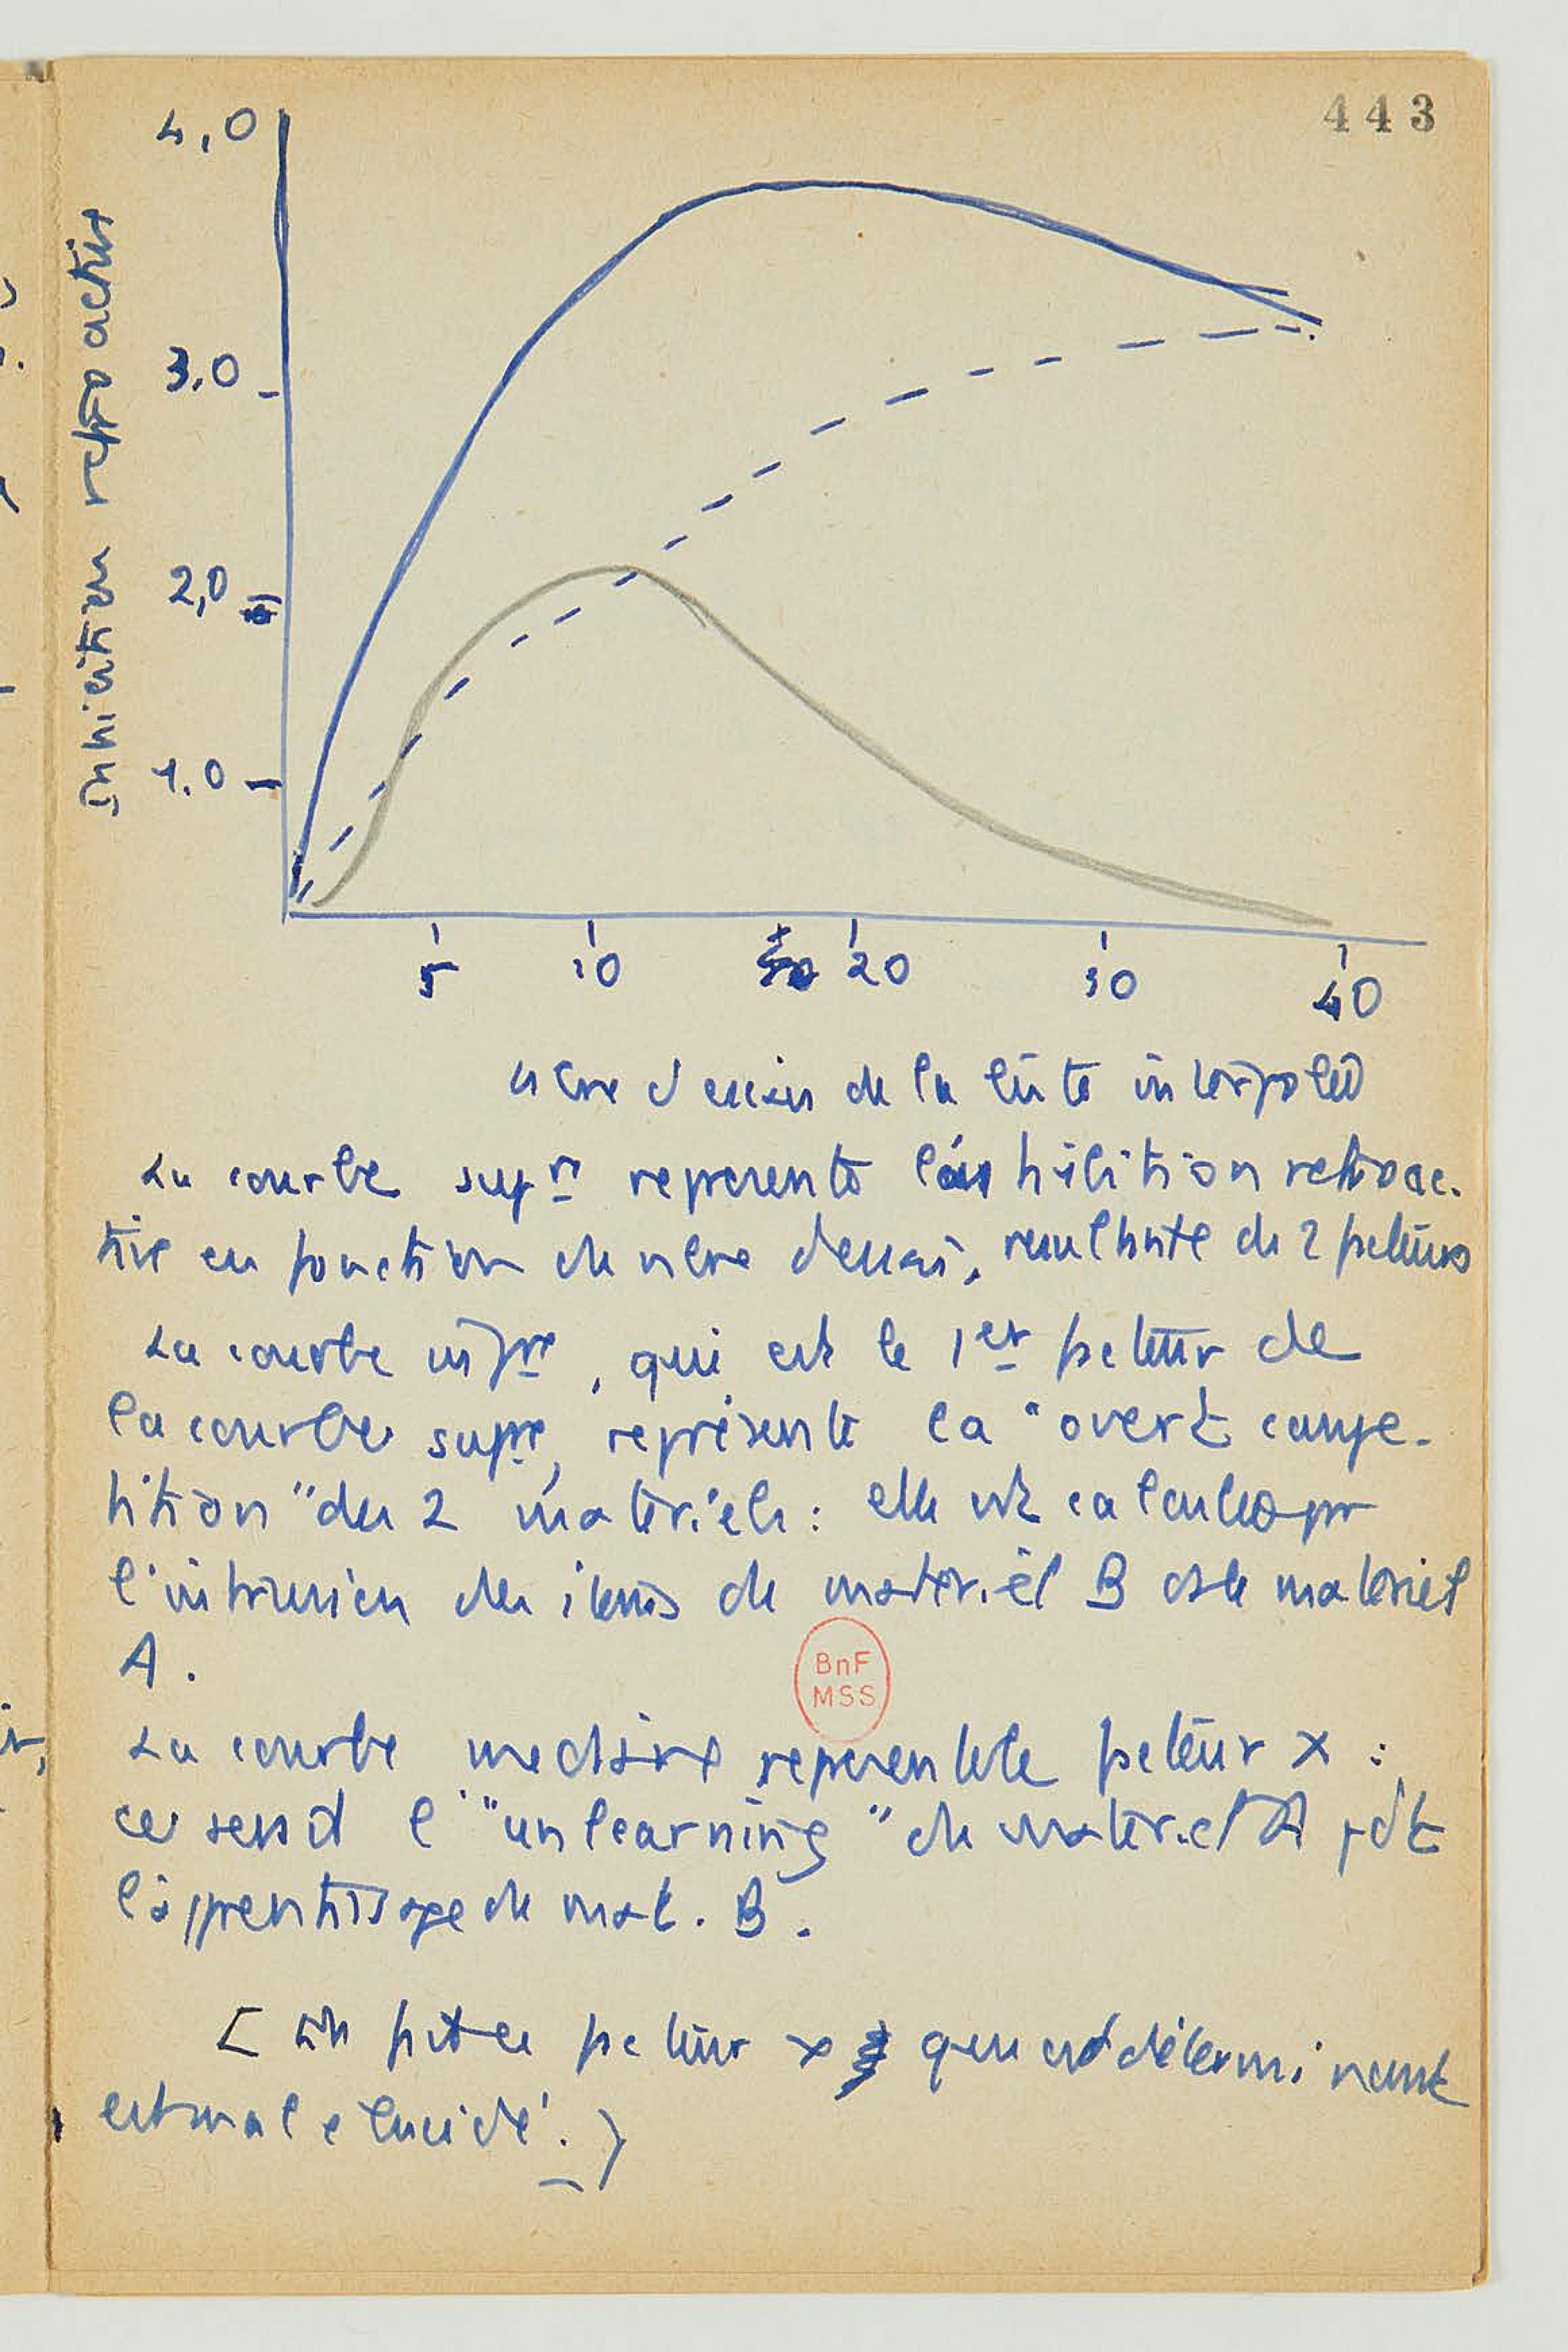 443
4,0
3,0
2,0
1.0
Inhibition retroactive
5 10 20 30 40
nbre d'essais de la liste interpolée
La courbe supre represente l'inhibition retroac-
tive en fonction du nbre d'essais, resultante de 2 facteurs
La courbe infre, qui est le 1er facteur de
la courbe supre, représente la "overt compe-
tition" des 2 matériels : elle est calculée par
l'intrusion des items du matériel B ds le matériel
A.
BnF
MSS
La courbe mediane represente le facteur x :
ce serait l'"unlearning" du matériel A pdt
l'apprentissage du mat. B.
[ En fait ce facteur x qui est déterminant
est mal elucidé. ]